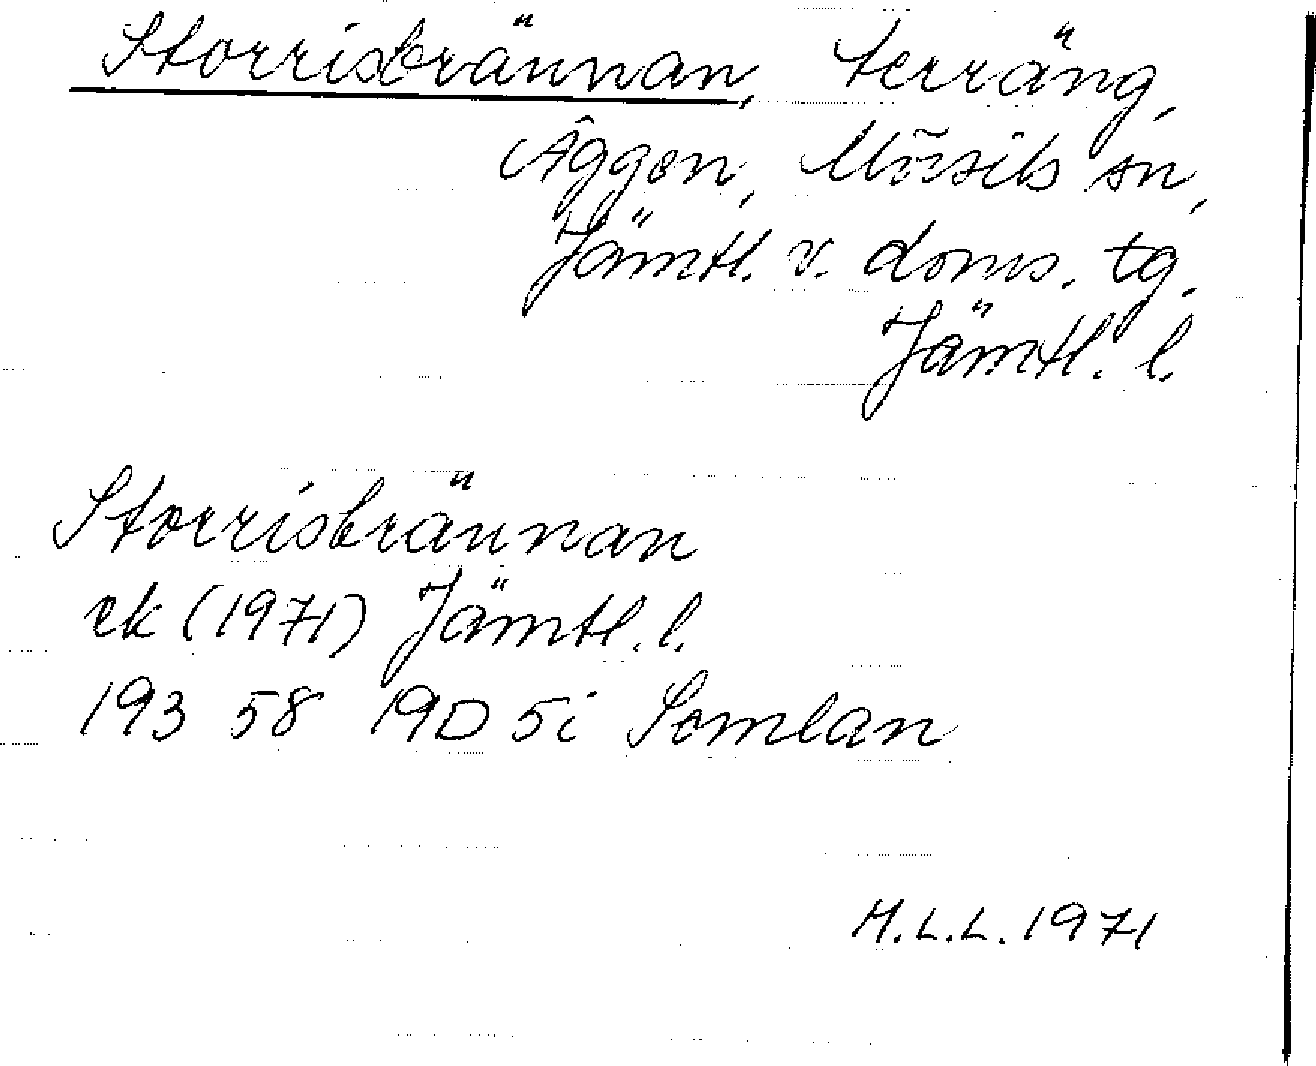 Storrisbrännan, terräng,
Äggen, Mörsils sn,
Jämtl. v. doms. tg.
Jämtl. l.
Storrisbrännan
ek (1971) Jämtl. l.
193 58 19D 5i Somlan
H.L.L. 1971